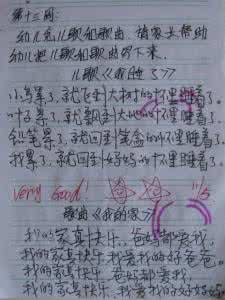 第十三周:
幼儿念儿歌和歌曲,请家长帮助
幼儿把儿歌和歌曲写下来.
儿歌《我睡了》
小鸟累了,就飞到大树的怀里睡着了。
叶子累了,就飘到大地的怀里睡着了。
铅笔累了,就回到笔盒的怀里睡着了。
我累了,就回到妈妈的怀里睡着了。
very Good! 11/5
歌曲《我的家》
我的家真快乐,爸妈都爱我,
我的家真快乐,我爱我的好爸爸。
我的家真快乐,爸妈都爱我,
我的家真快乐,我爱我的好妈妈.